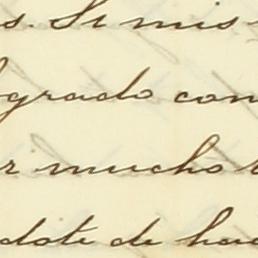 s. Si mis
grado con
r mucho
dote de hac